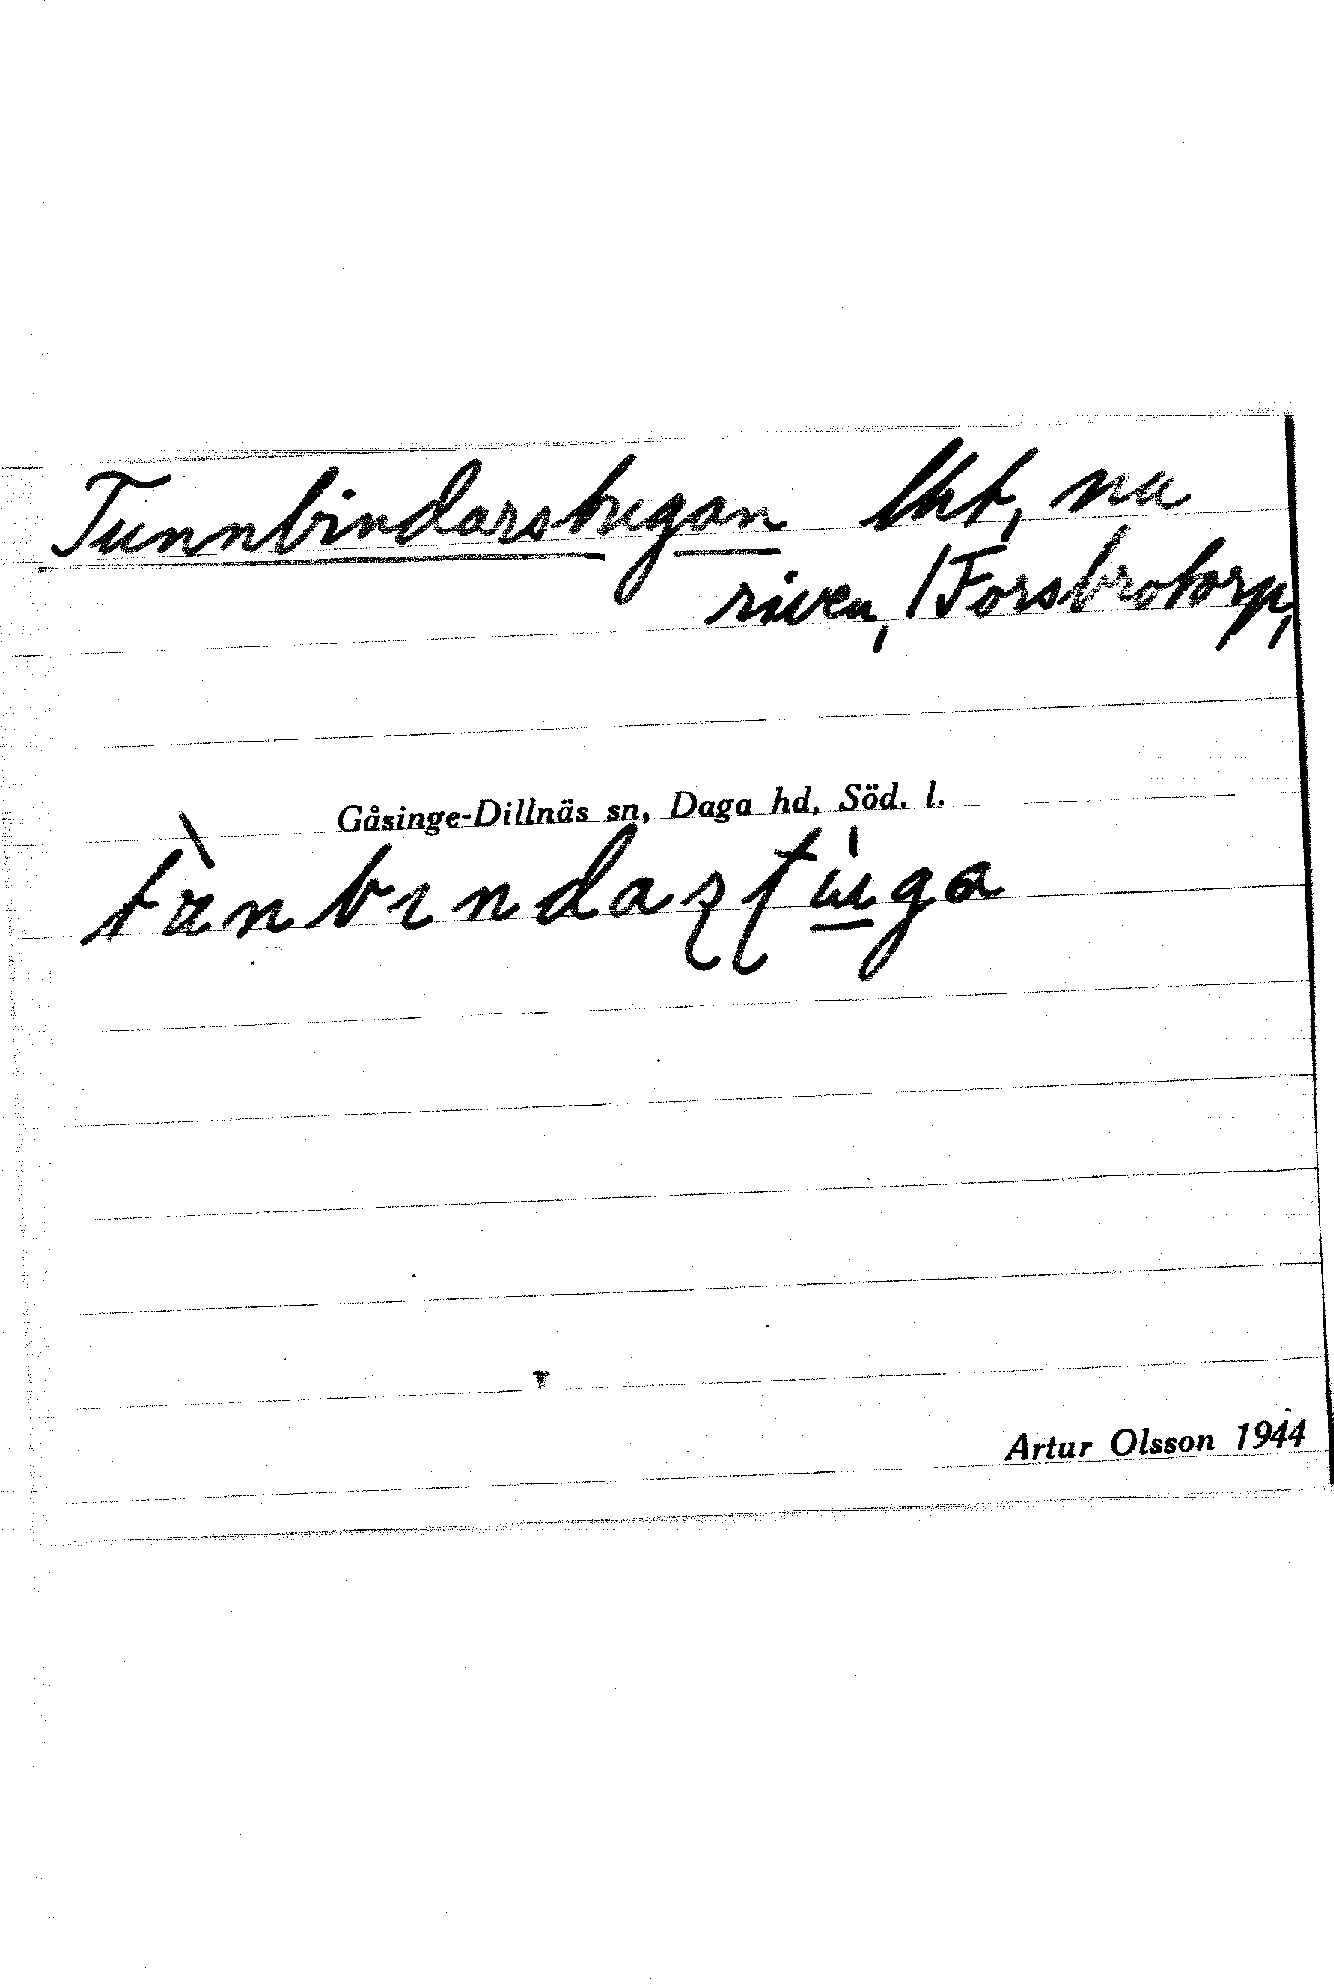 Tunnbindarstugan lht, nu
riven, /Forsbrotorp,
Gåsinge-Dillnäs sn, Daga hd, Söd. l.
Artur Olsson 1944